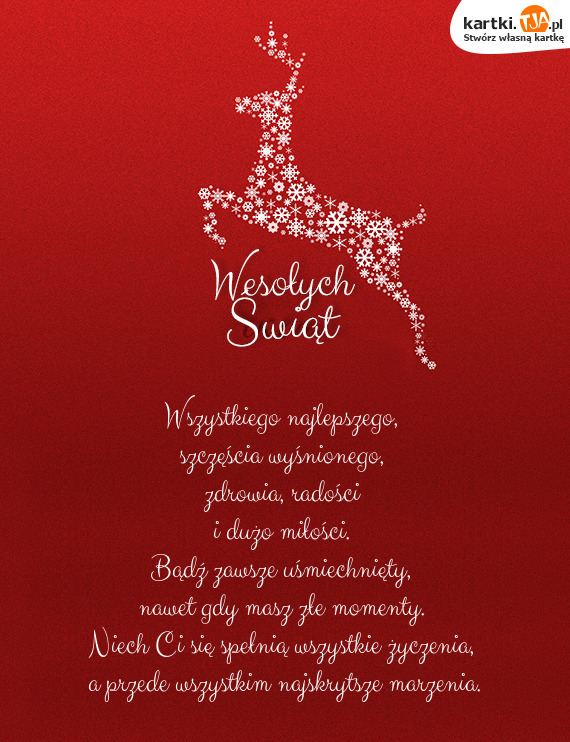 kartki.TJA.pl
Stwórz własną kartkę
Wesołych
Świąt
Wszystkiego najlepszego,
szczęścia wyśnionego,
zdrowia, radości
i dużo miłości.
Bądź zawsze uśmiechnięty,
nawet gdy masz złe momenty.
Niech Ci się spełnią wszystkie życzenia,
a przede wszystkim najskrytsze marzenia.